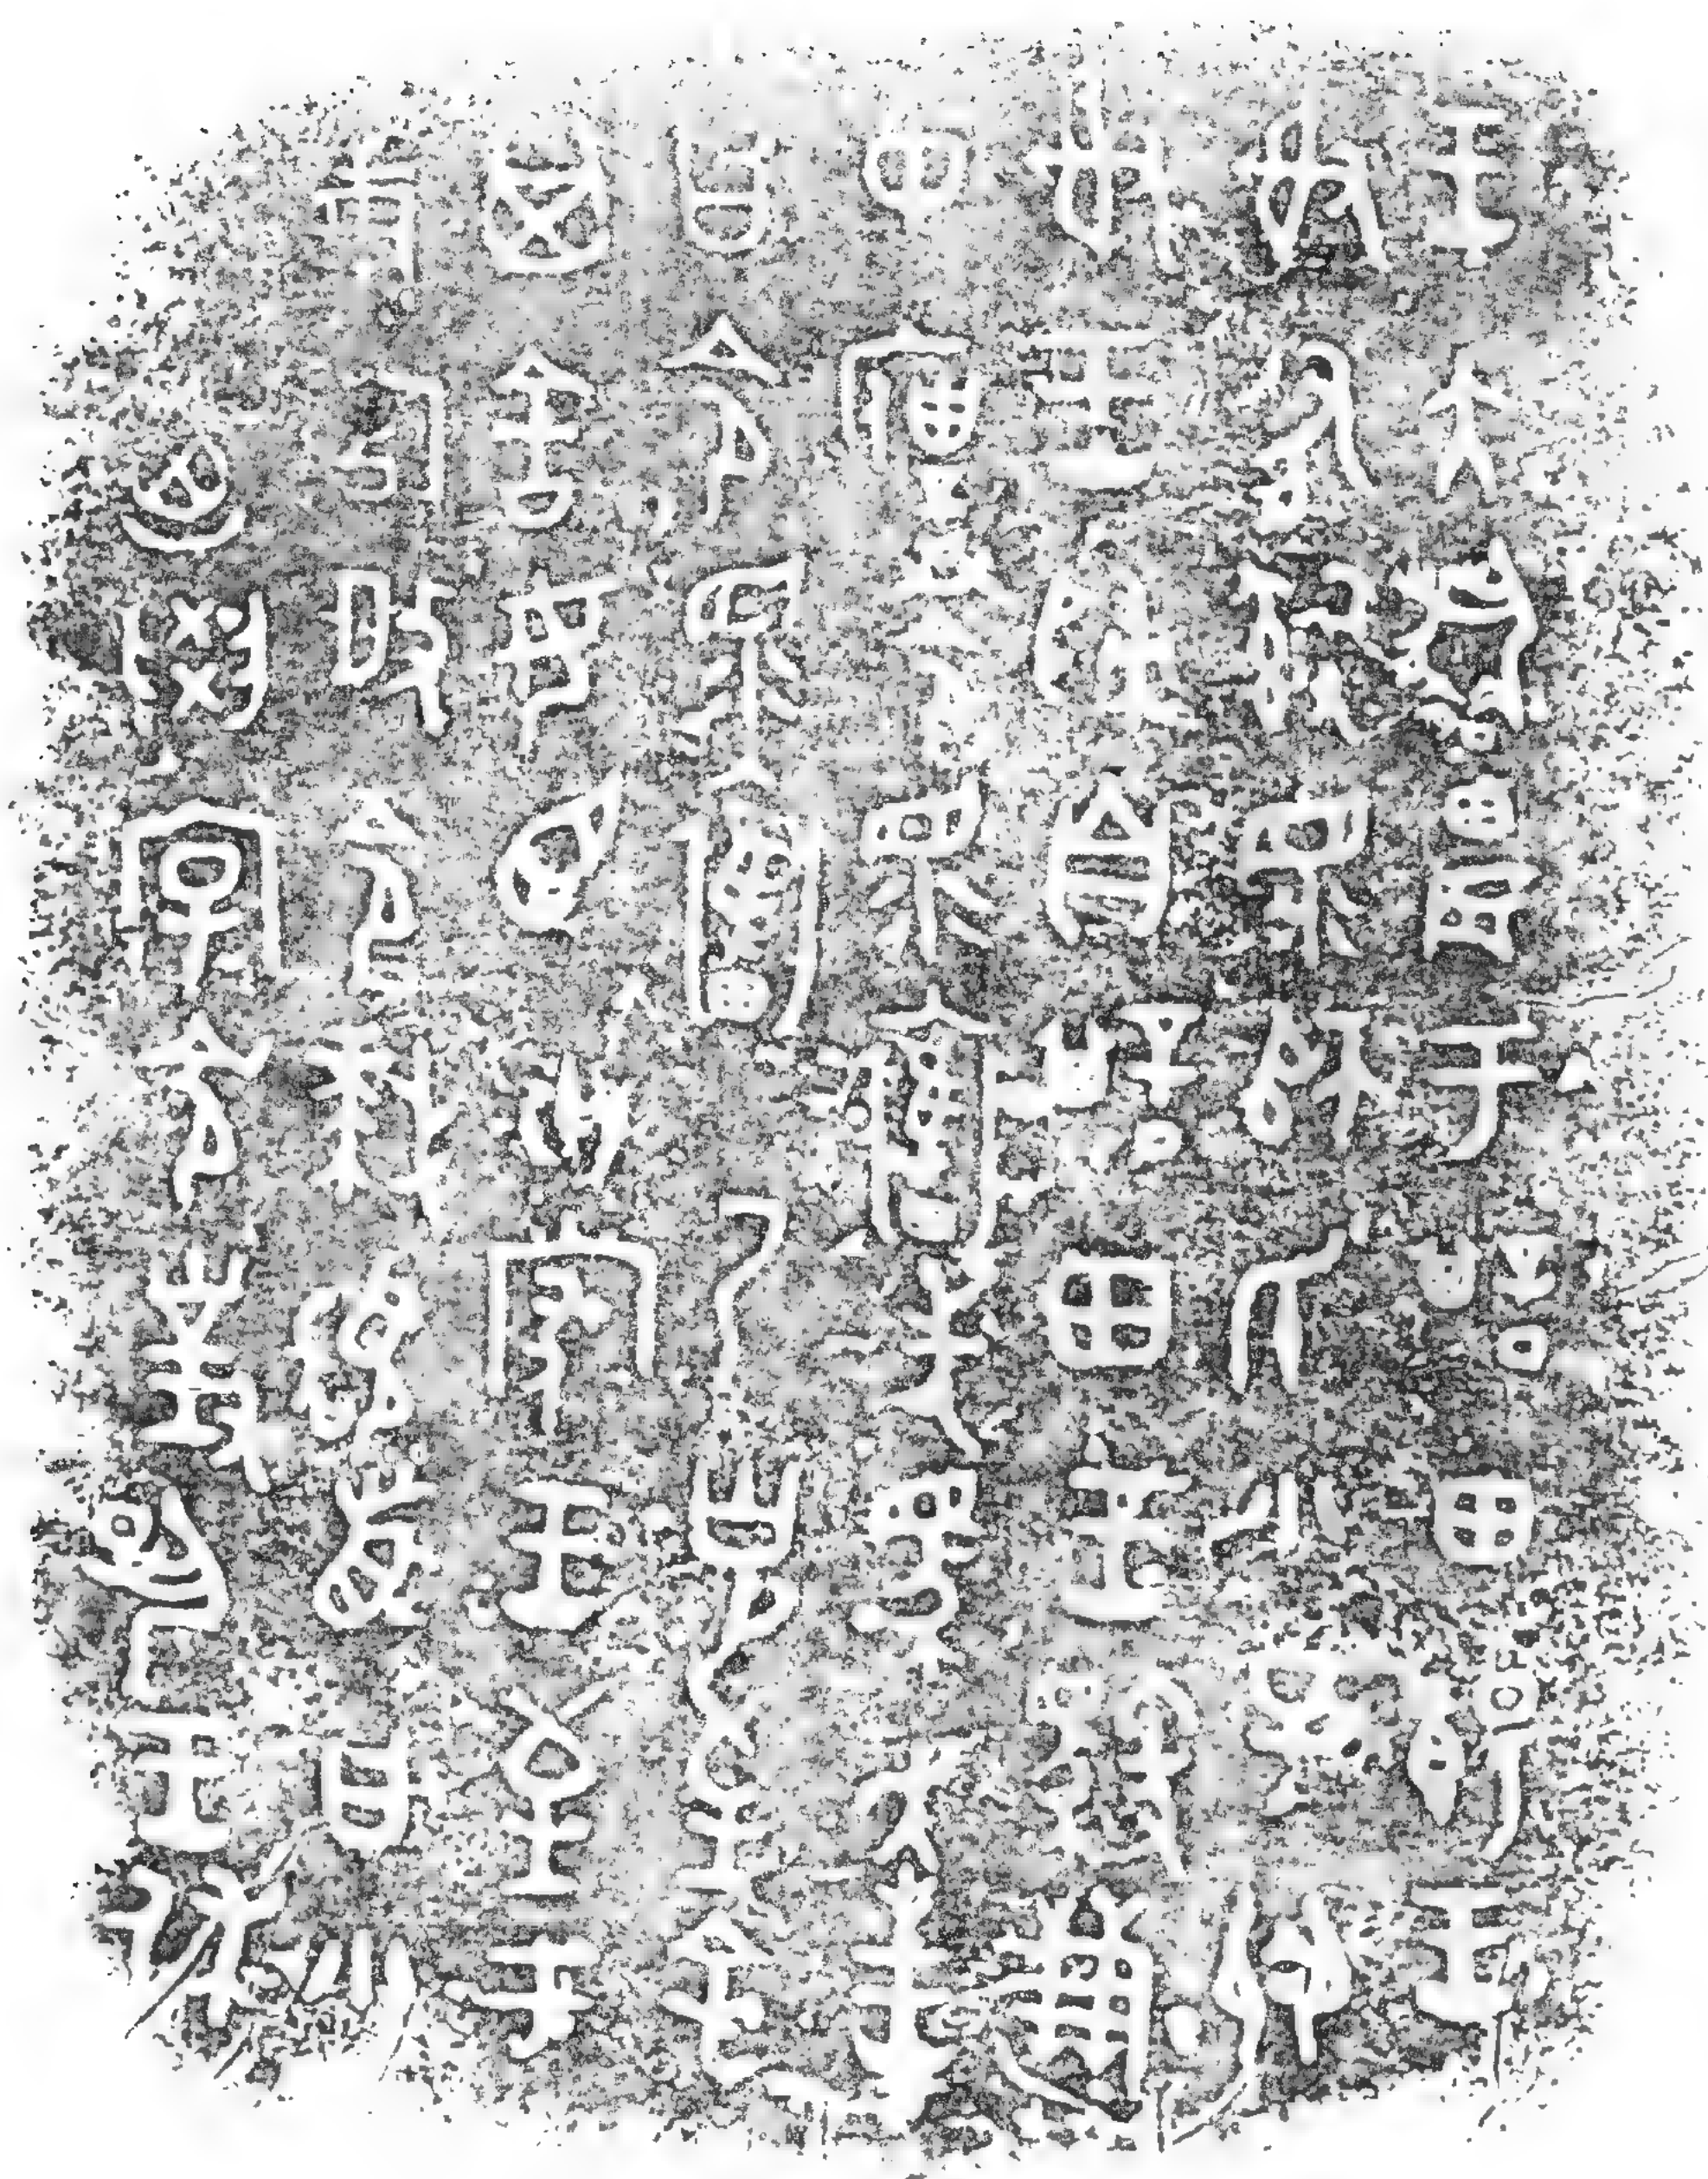 王大耤農于諆田餳王
射有𤔲眔師氏小子𨛭
射王歸自諆田王馭溓
中僕令眔奮先馬走王
曰令眔奮乃克至余
其舍女臣十家王至于
溓宮𢿱令拜𩒨首曰小
子迺學令對揚王休